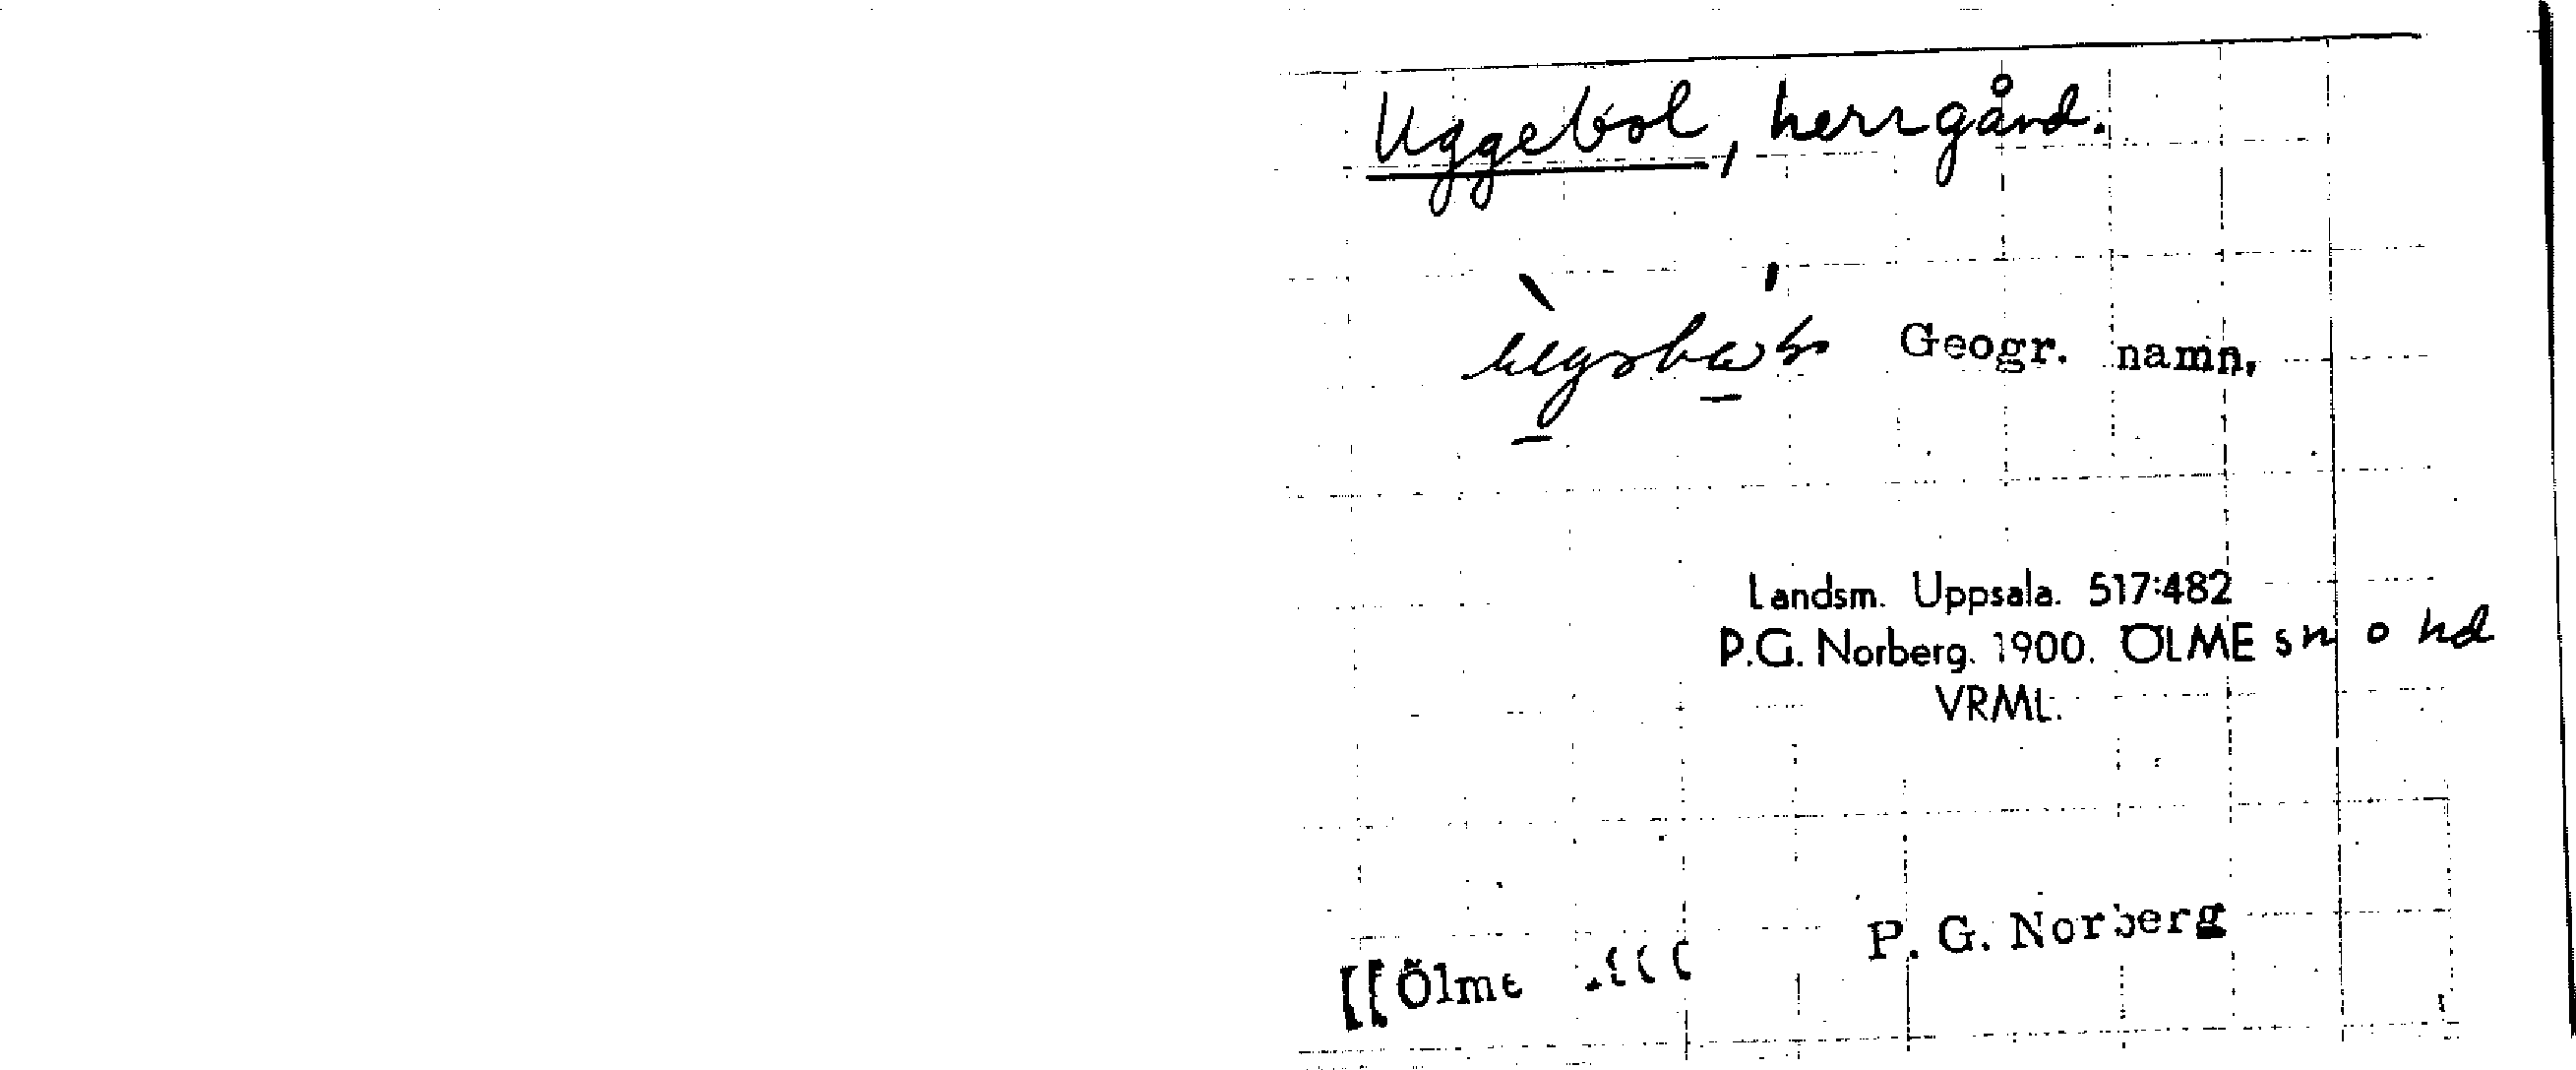 Uggebol, herrgård.
Geogr. namn.
Landsm. Uppsala. 517:482
P.G. Norberg. 1900. ÖLME sn o hd
VRML.
[[Ölme
P. G. Norberg